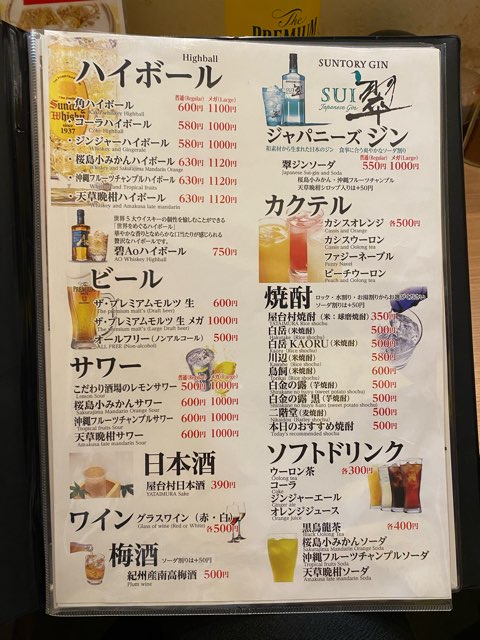 The
PREMIUM
ハイボール
Highball
普通(Regular) メガ(Large)
・角ハイボール 600円 1100円
・コーラハイボール 580円 1000円
Coke Highball
・ジンジャーハイボール 580円 1000円
・桜島小みかんハイボール 630円 1120円
・沖縄フルーツチャンプルハイボール 630円 1120円
・天草晩柑ハイボール 630円 1120円
世界5大ウイスキーの個性を愉しむことができる
「世界をめぐるハイボール」
華やかな香りとなめらかな口当たりが感じられる
贅沢なハイボールです。
碧Aoハイボール 750円
AO Whiskey Highball
ビール
ザ・プレミアムモルツ 生 600円
The premium malt's (Draft beer)
ザ・プレミアムモルツ 生 メガ 1000円
The premium malt's (Large Draft beer)
オールフリー(ノンアルコール) 500円
ALL FREE (Non-alcohol)
サワー
普通(Regular) メガ(Large)
こだわり酒場のレモンサワー 500円 1000円
Lemon Sour
桜島小みかんサワー 600円 1000円
Sakurajima Mandarin Orange Sour
沖縄フルーツチャンプルサワー 600円 1000円
Tropical fruits Sour
天草晩柑サワー 600円 1000円
Amakusa late mandarin Sour
日本酒
屋台村日本酒 390円
YATAIMURA Sake
ワイン
グラスワイン(赤・白)
Glass of wine (Red or White)
各500円
梅酒
ソーダ割りは+50円
紀州産南高梅酒 500円
Plum wine
SUNTORY GIN
SUI 翠
Japanese Gin
ジャパニーズ ジン
和素材から生まれた日本のジン 食事に合う爽やかなソーダ割り
普通(Regular) メガ(Large)
翠ジンソーダ 550円 1000円
Japanese Sui-gin and Soda
桜島小みかん・沖縄フルーツチャンプル
天草晩柑シロップ入りは+50円
カクテル
カシスオレンジ 各500円
Cassis and Orange
カシスウーロン
Cassis and Oolong tea
ファジーネーブル
Fuzzy Navel
ピーチウーロン
Peach and Oolong tea
焼酎
ロック・水割り・お湯割りからお選びください
ソーダ割りは+50円
屋台村焼酎(米:球磨焼酎) 350円
YATAIMURA Rice shochu
白岳(米焼酎) 500円
白岳 KAORU(米焼酎) 500円
川辺(米焼酎) 580円
鳥飼(米焼酎) 600円
白金の露(芋焼酎) 500円
白金の露 黒(芋焼酎) 500円
二階堂(麦焼酎) 500円
本日のおすすめ焼酎 500円
Today's recommended shochu
ソフトドリンク
ウーロン茶 各300円
Oolong tea
コーラ
Coke
ジンジャーエール
Ginger ale
オレンジジュース
Orange juice
黒烏龍茶 各400円
Black Oolong Tea
桜島小みかんソーダ
Sakurajima Mandarin Orange Soda
沖縄フルーツチャンプルソーダ
Tropical fruits Soda
天草晩柑ソーダ
Amakusa late mandarin Soda